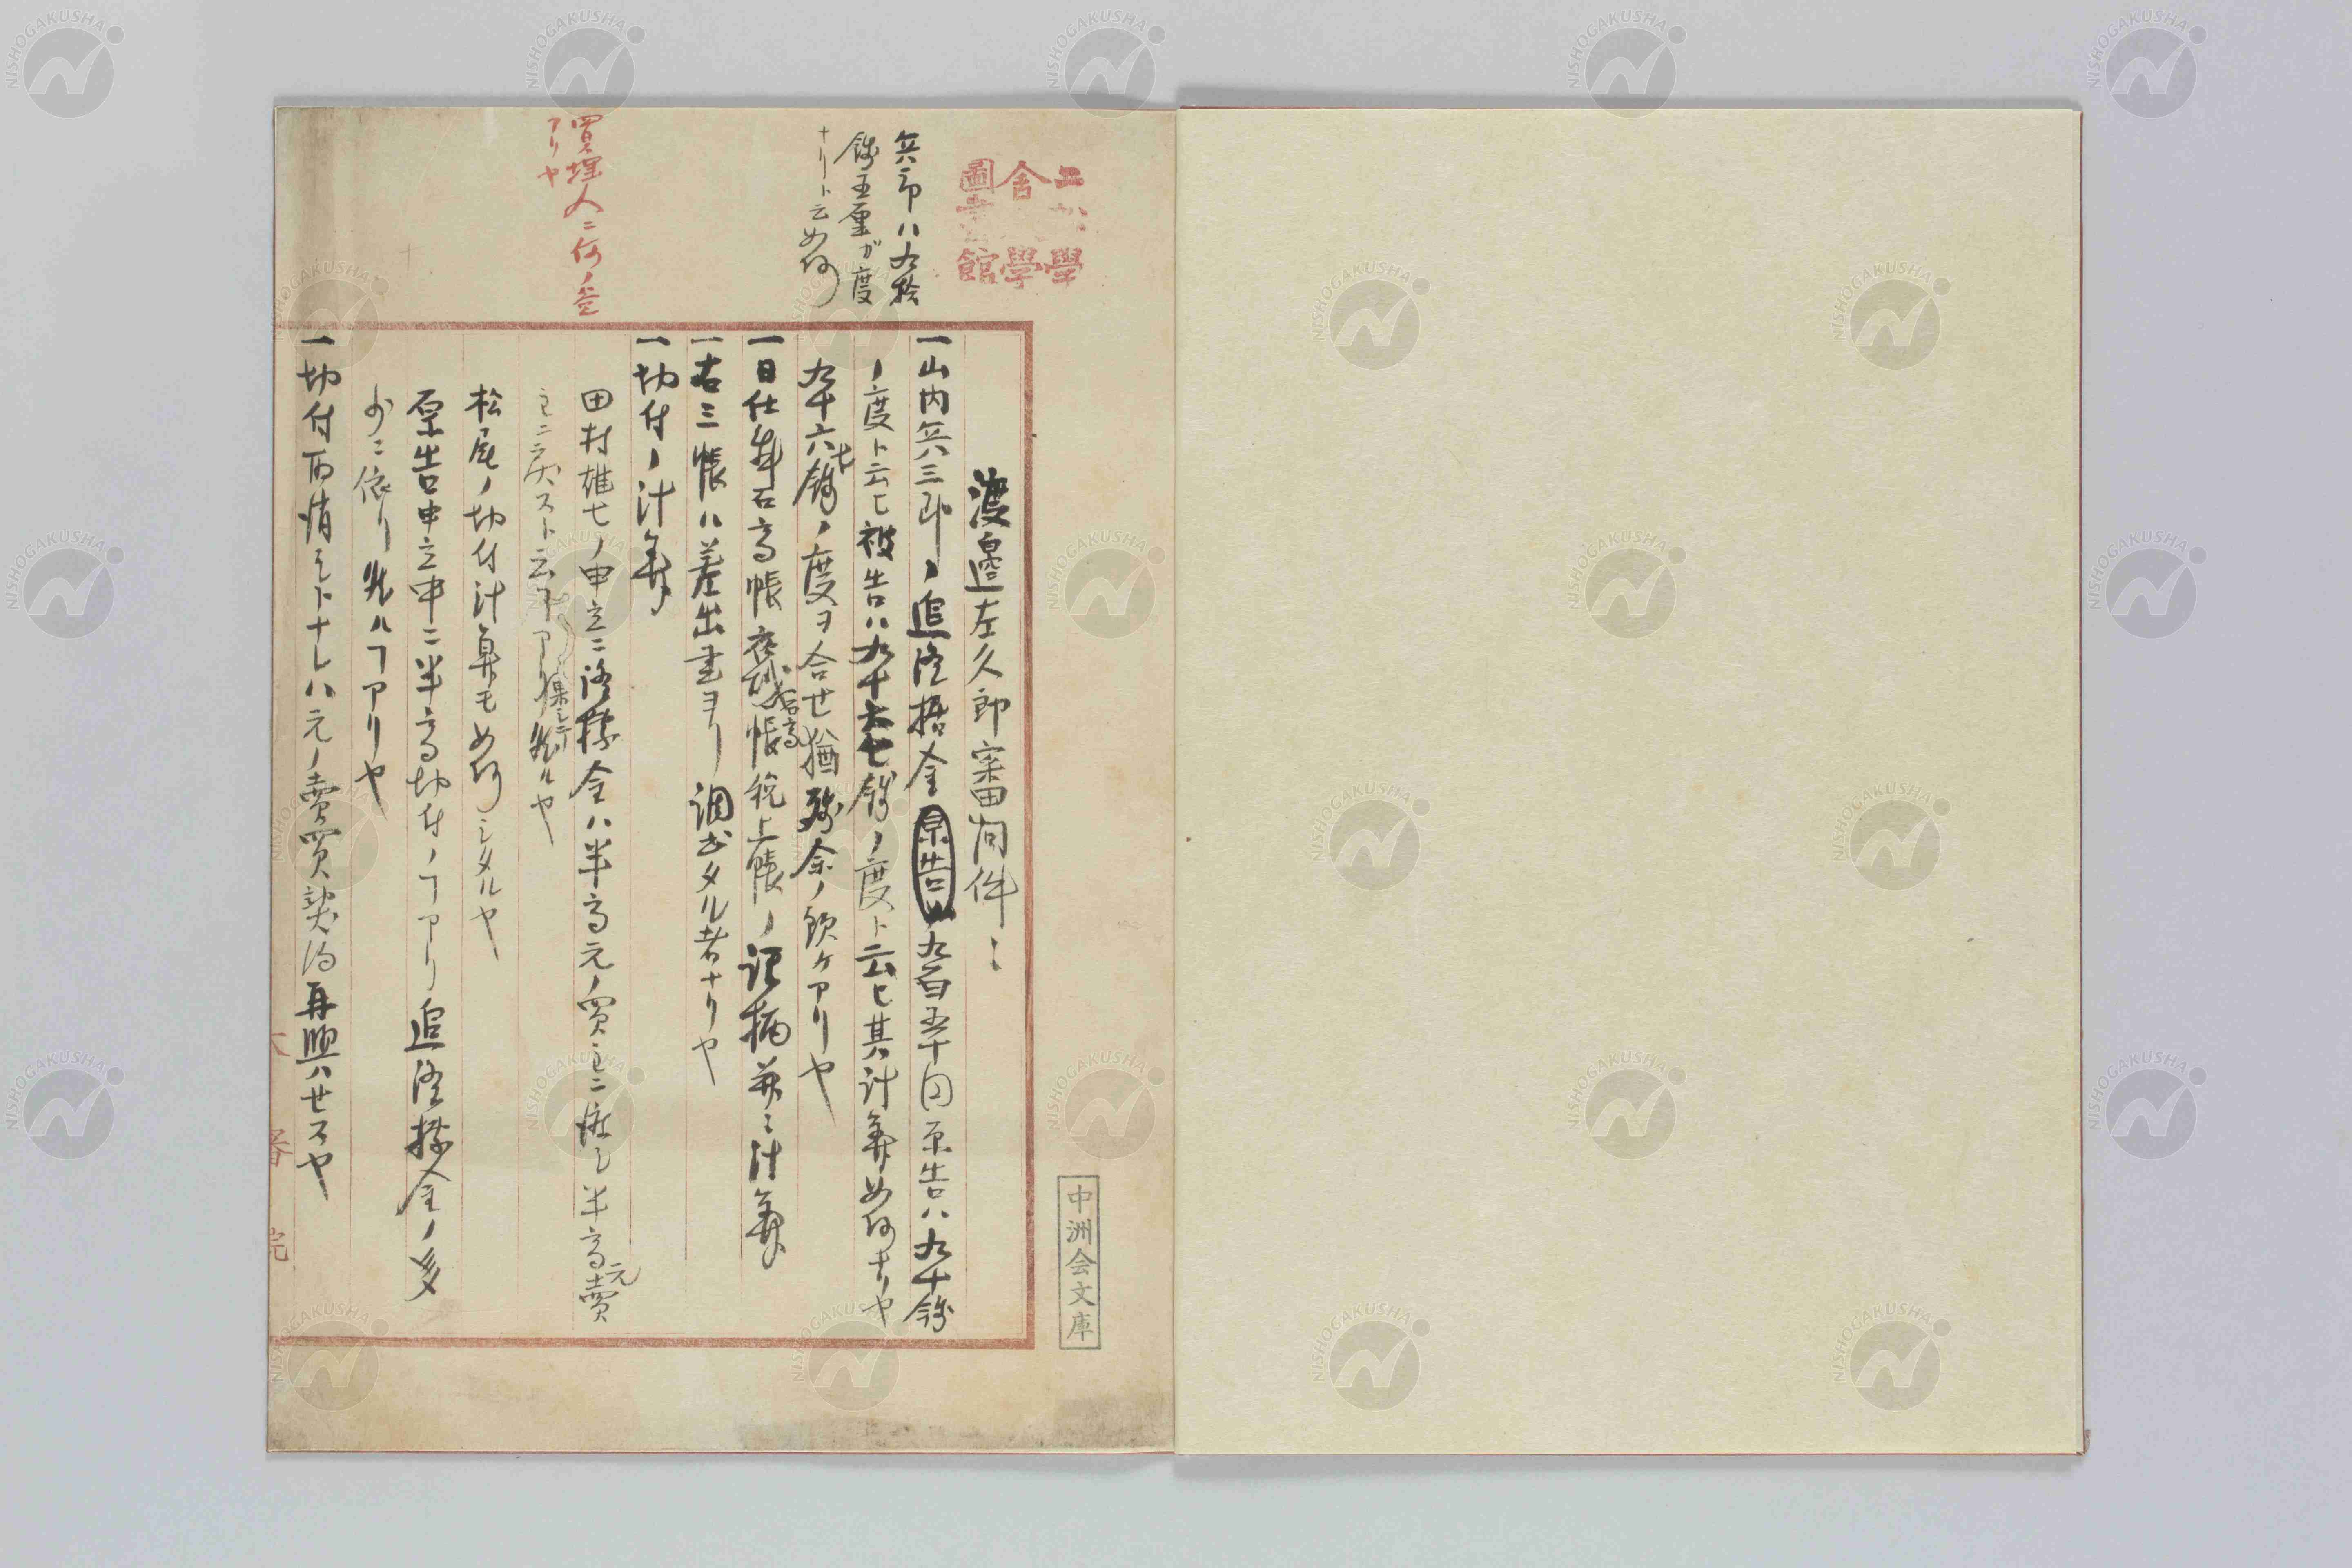 二松學
舍學
圖書館
中洲会文庫
兵郎ハ九拾
錢五厘ガ度
ナリト云如何
買埋人ニ何ノ益
アリヤ
渡邉左久郎審問件〻
一山内兵三郎ノ追證拠金原告ハ九百五十円原告ハ九十錢
ノ度ト云ヒ被告ハ九十六七錢ノ度ト云ヒ其計算如何ナリヤ
九十六七錢ノ度ヲ合セ猶残余ノ欠ケアリヤ
一日仕譯石高帳 石高帳 上帳ノ記柄并ニ計算
一右三帳ハ差出書ヨリ調出タル者ナリヤ
一切付ノ計算
田村雄七ノ申立ニ證拠金ハ半高元ノ買主ニ渡シ半高元賣
主ニ戻スト云フアリ ルヤ
松尾ノ切付計算モ如何シタルヤ
原告申立中ニ半高切付ノヿアリ追證拠金ノ多
少ニ依リ ルヿアリヤ
一切付两消シトナレハ元ノ賣買契約再興ハセスヤ
大審院
NISHOGAKUSHA